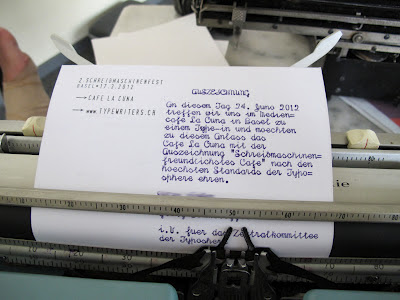 2 SCHREIBMASCHINENFEST
BASEL
→ CAFE LA CUNA
→ WWW.TYPEWRITERS.CH
AUSZEICHNUNG
An diesem Tag 24. Juno 2012
treffen wir uns im Medien=
cafe La Cuna in Basel zu
einem Type-in und moechten
zu diesem Anlass das
Cafe La Cuna mit der
Auszeichnung "Schreibmaschinen=
freundlichstes Cafe" nach den
hoechsten Standards der Typo=
sphere ehren.
i.V. fuer das Zentralkommittee
der Typosphere
10 20 30 40 50 60 70 80